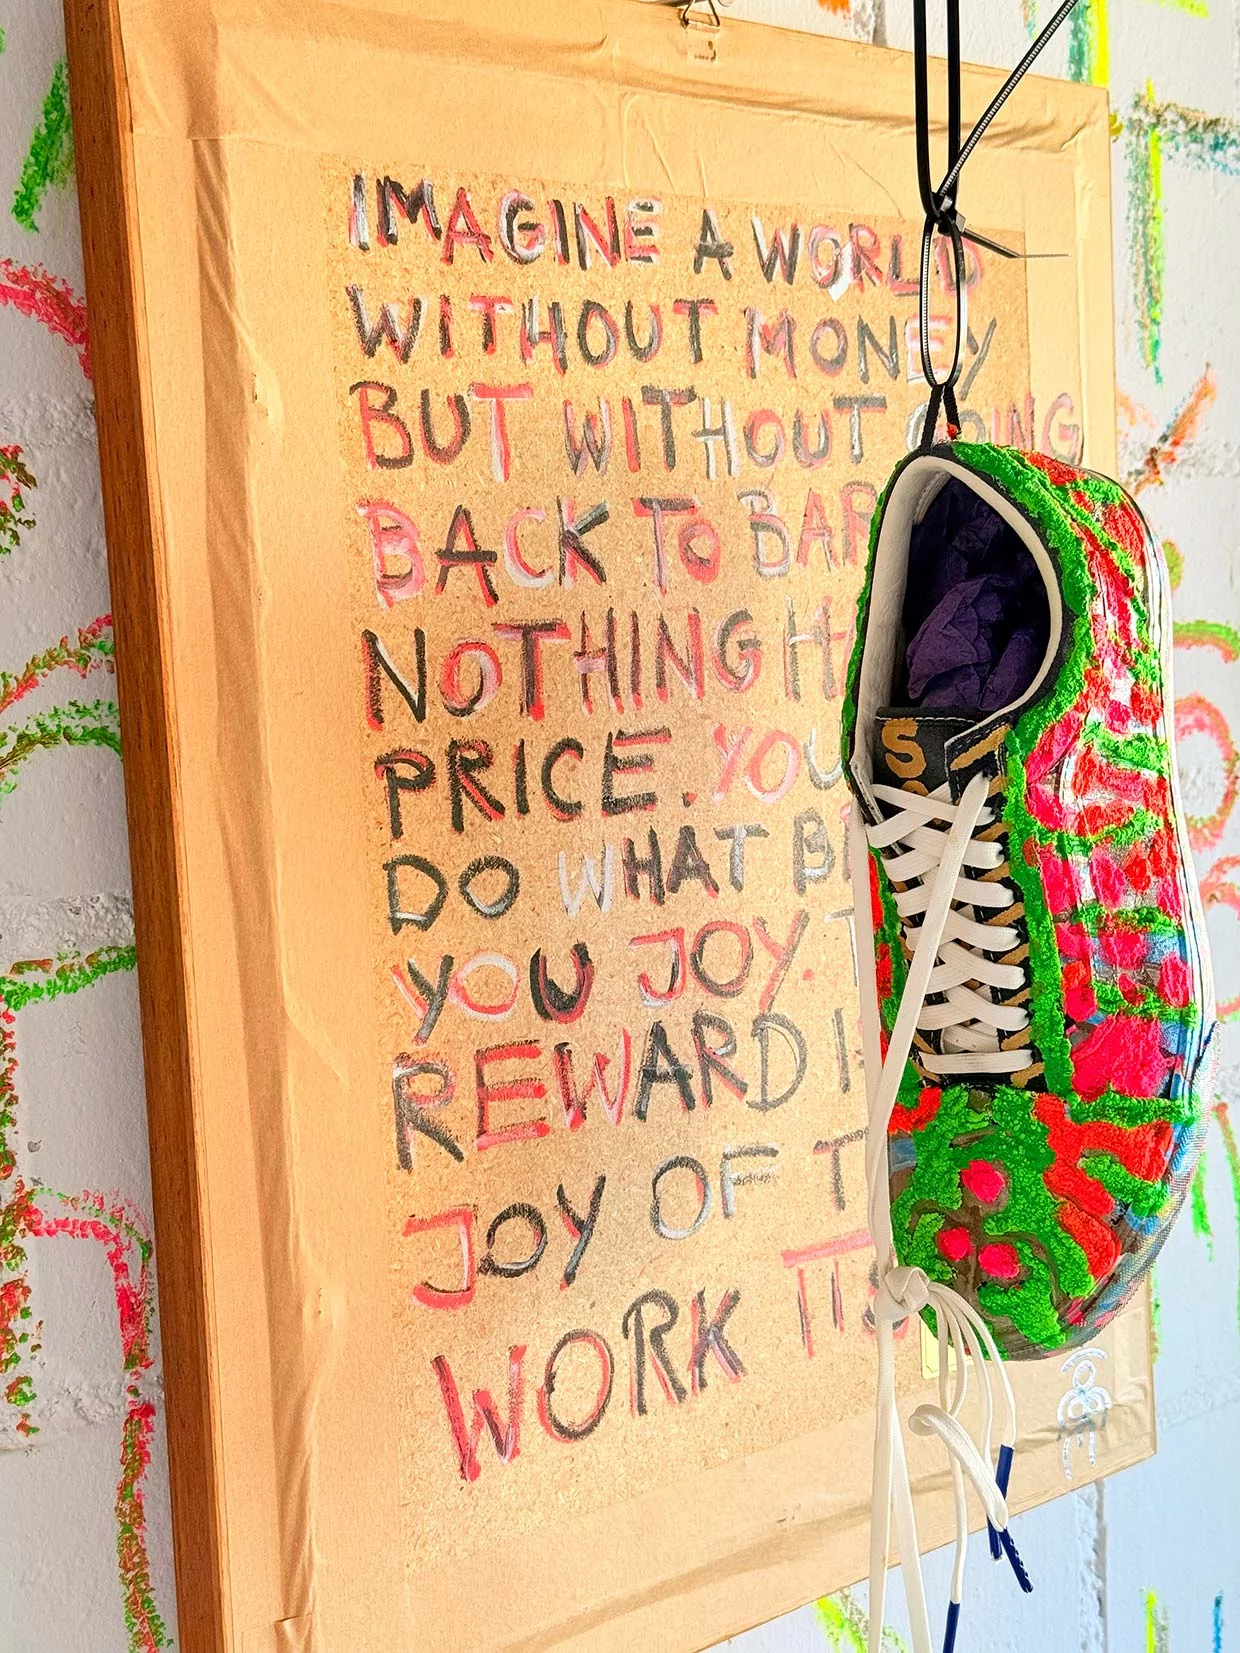 IMAGINE A WORLD
WITHOUT MONEY
BUT WITHOUT GOING
BACK TO BAR
NOTHING HA
PRICE. YOU
DO WHAT B
YOU JOY. T
REWARD IS
JOY OF T
WORK ITS
S